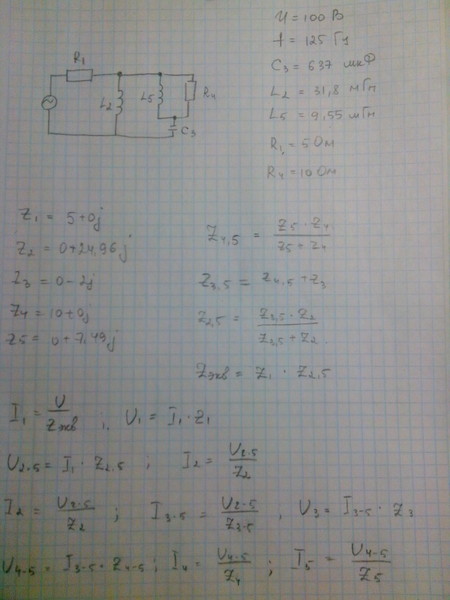 U = 100 В
f = 125 Гц
C₃ = 637 мкФ
L₂ = 31,8 мГн
L₅ = 9,55 мГн
R₁ = 5 Ом
R₄ = 10 Ом
R₁
L₂
L₅
R₄
C₃
Z₁ = 5+0j
Z₂ = 0+24,96j
Z₃ = 0-2j
Z₄ = 10+0j
Z₅ = 0+7,49j
Z₄,₅ = Z₅ · Z₄ / Z₅ + Z₄
Z₃,₅ = Z₄,₅ + Z₃
Z₂,₅ = Z₃,₅ · Z₂ / Z₃,₅ + Z₂
Zэкв = Z₁ · Z₂,₅
I₁ = U / Zэкв ; U₁ = I₁ · Z₁
U₂₋₅ = I₁ · Z₂,₅ ; I₂ = U₂₋₅ / Z₂
I₂ = U₂₋₅ / Z₂ ; I₃₋₅ = U₂₋₅ / Z₃₋₅ ; U₃ = I₃₋₅ · Z₃
U₄₋₅ = I₃₋₅ · Z₄₋₅ ; I₄ = U₄₋₅ / Z₄ ; I₅ = U₄₋₅ / Z₅